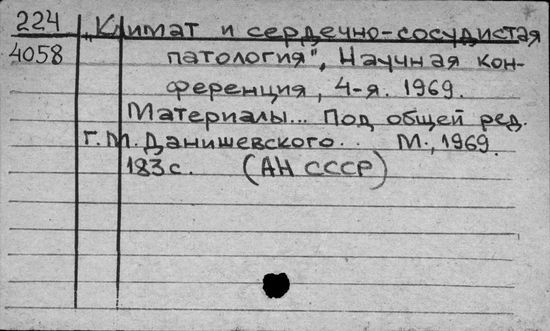 224 „Климат и сердечно-сосудистая
4058 патология", Научная кон-
ференция, 4-я. 1969.
Материалы... Под общей ред.
Г.М.Данишевского.. М., 1969.
183с. (АН СССР)